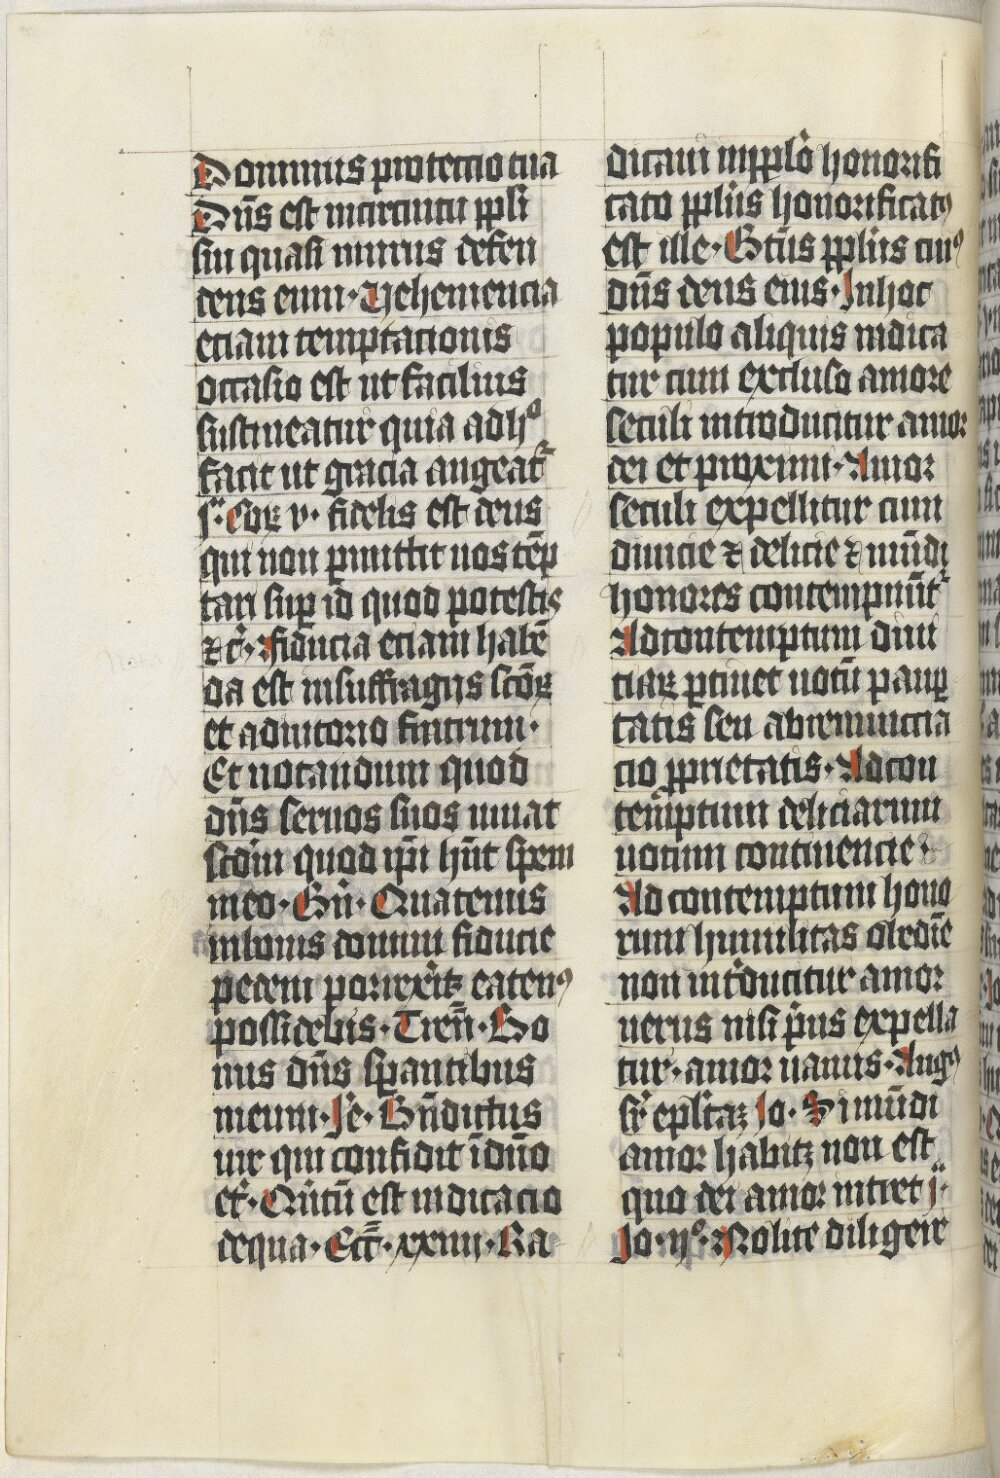 Dominus protectio tua
Dn̄s est incircuitu ppl̄i
sui quasi murus defen
dens eum · Vehemencia
eciam temptacionis
occasio est ut facilius
sustineatur quia adhͦ
facit ut gracia augeat᷑
j · Coꝝ v · fidelis est deus
qui non ꝑmittit uos tēp
tari suꝑ id quod potestis
⁊ c̄ · fiducia eciam habē
da est insuffragijs sc̄oꝝ
et adiutorio fratrum ·
Et notandum quod
dn̄s seruos suos iuuat
scd̄m quod ip̄i hn̄t spem
ineo · Gn̄ · Quatenus
inbonis domini fiducie
pedem porrexeritꝫ eatenꝰ
possidebis · Tren̄ · Bo
nus dn̄s sꝑantibus
ineum · Je · Bn̄dictus
uir qui confidit īdn̄o
et᷑ · Qūtū est indicacio
dequa · Ecc̄ · xxiiii · Ra
dicaui inpplō honorifi
cato pplūs honorificatꝰ
est ille · Btūs pplūs cuiꝰ
dn̄s deus eius · Inhoc
populo aliquis radica
tur cum excluso amore
seculi introducitur amor
dei et proximi · Amor
seculi expellitur cum
diuicie ⁊ delicie ⁊ mūdi
honores contempnūt᷑
Adcontemptum diui
ciaꝝ ꝑtinet uotū pauꝑ
tatis seu abrenuncia
cio ꝓprietatis · Adcon
temptum deliciarum
uotum continencie ·
Ad contemptum hono
rum humilitas obediē
non introducitur amor
uerus nisi pͥus expella
tur · amor uanus · Augꝰ
sr̄ epl̄taꝫ Jo · Si mūdi
amor habitꝫ non est
quo dei amor intret j ·
Jo · ijͦ · Nolite diligere